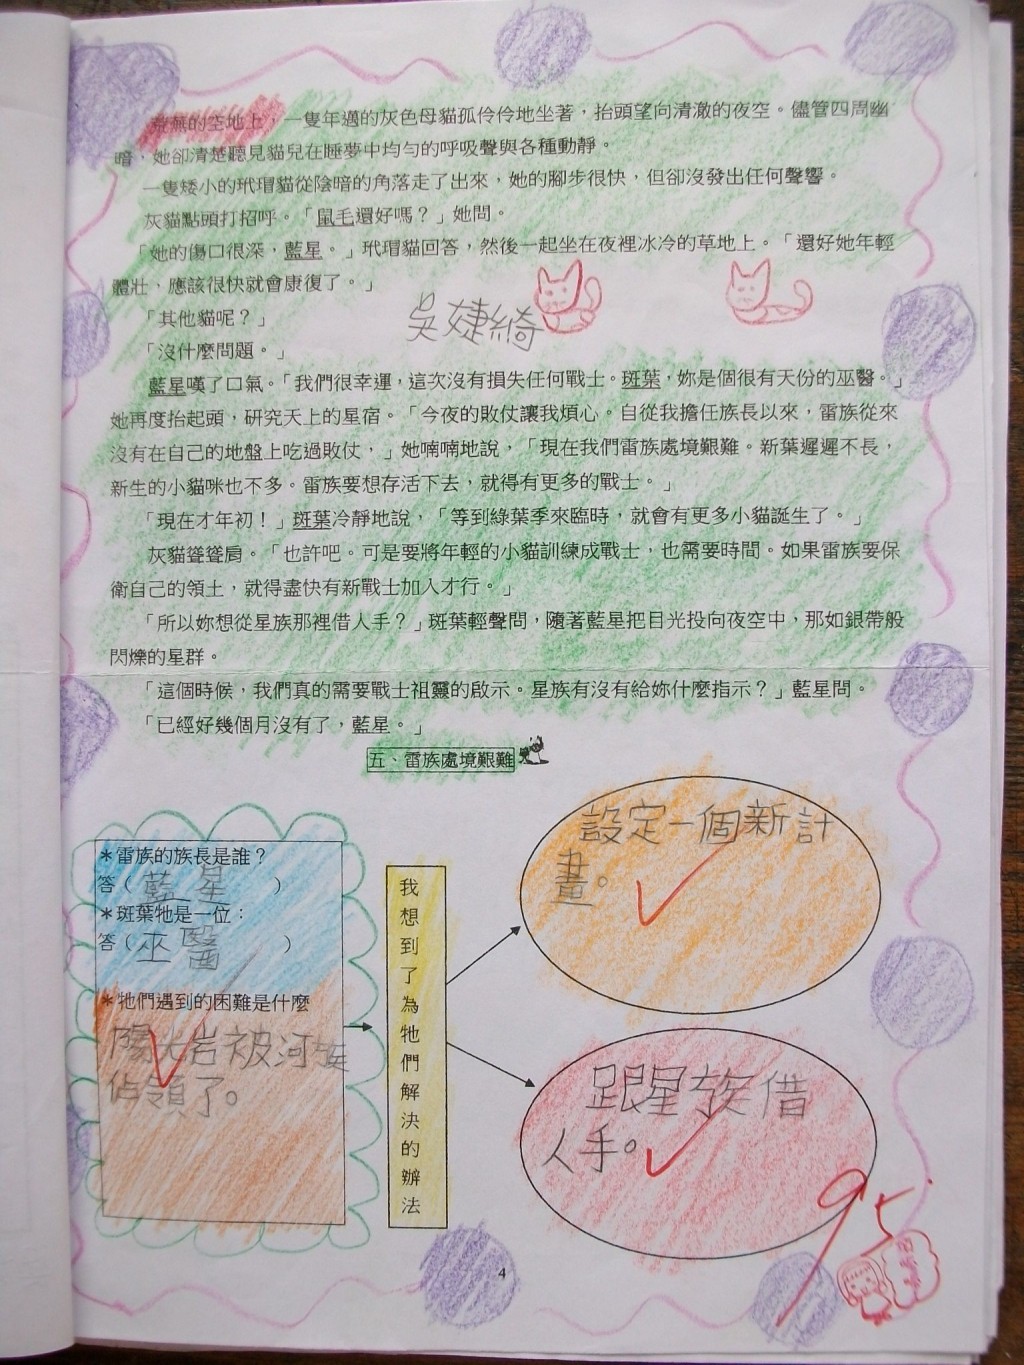 荒蕪的空地上，一隻年邁的灰色母貓孤伶伶地坐著，抬頭望向清澈的夜空。儘管四周幽
暗，她卻清楚聽見貓兒在睡夢中均勻的呼吸聲與各種動靜。
一隻矮小的玳瑁貓從陰暗的角落走了出來，她的腳步很快，但卻沒發出任何聲響。
灰貓點頭打招呼。「鼠毛還好嗎？」她問。
「她的傷口很深，藍星。」玳瑁貓回答，然後一起坐在夜裡冰冷的草地上。「還好她年輕
體壯，應該很快就會康復了。」
「其他貓呢？」
吳婕綺
「沒什麼問題。」
藍星嘆了口氣。「我們很幸運，這次沒有損失任何戰士。斑葉，妳是個很有天份的巫醫。」
她再度抬起頭，研究天上的星宿。「今夜的敗仗讓我煩心。自從我擔任族長以來，雷族從來
沒有在自己的地盤上吃過敗仗，」她喃喃地說，「現在我們雷族處境艱難。新葉遲遲不長，
新生的小貓咪也不多。雷族要想存活下去，就得有更多的戰士。」
「現在才年初！」斑葉冷靜地說，「等到綠葉季來臨時，就會有更多小貓誕生了。」
灰貓聳聳肩。「也許吧。可是要將年輕的小貓訓練成戰士，也需要時間。如果雷族要保
衛自己的領土，就得盡快有新戰士加入才行。」
「所以妳想從星族那裡借人手？」斑葉輕聲問，隨著藍星把目光投向夜空中，那如銀帶般
閃爍的星群。
「這個時候，我們真的需要戰士祖靈的啟示。星族有沒有給妳什麼指示？」藍星問。
「已經好幾個月沒有了，藍星。」
五、雷族處境艱難
＊雷族的族長是誰？
答（藍星）
＊斑葉牠是一位：
答（巫醫）
＊牠們遇到的困難是什麼
陽光岩被河族
佔領了。
我想到了為牠們解決的辦法
設定一個新計
畫。
跟星族借
人手。
95
4